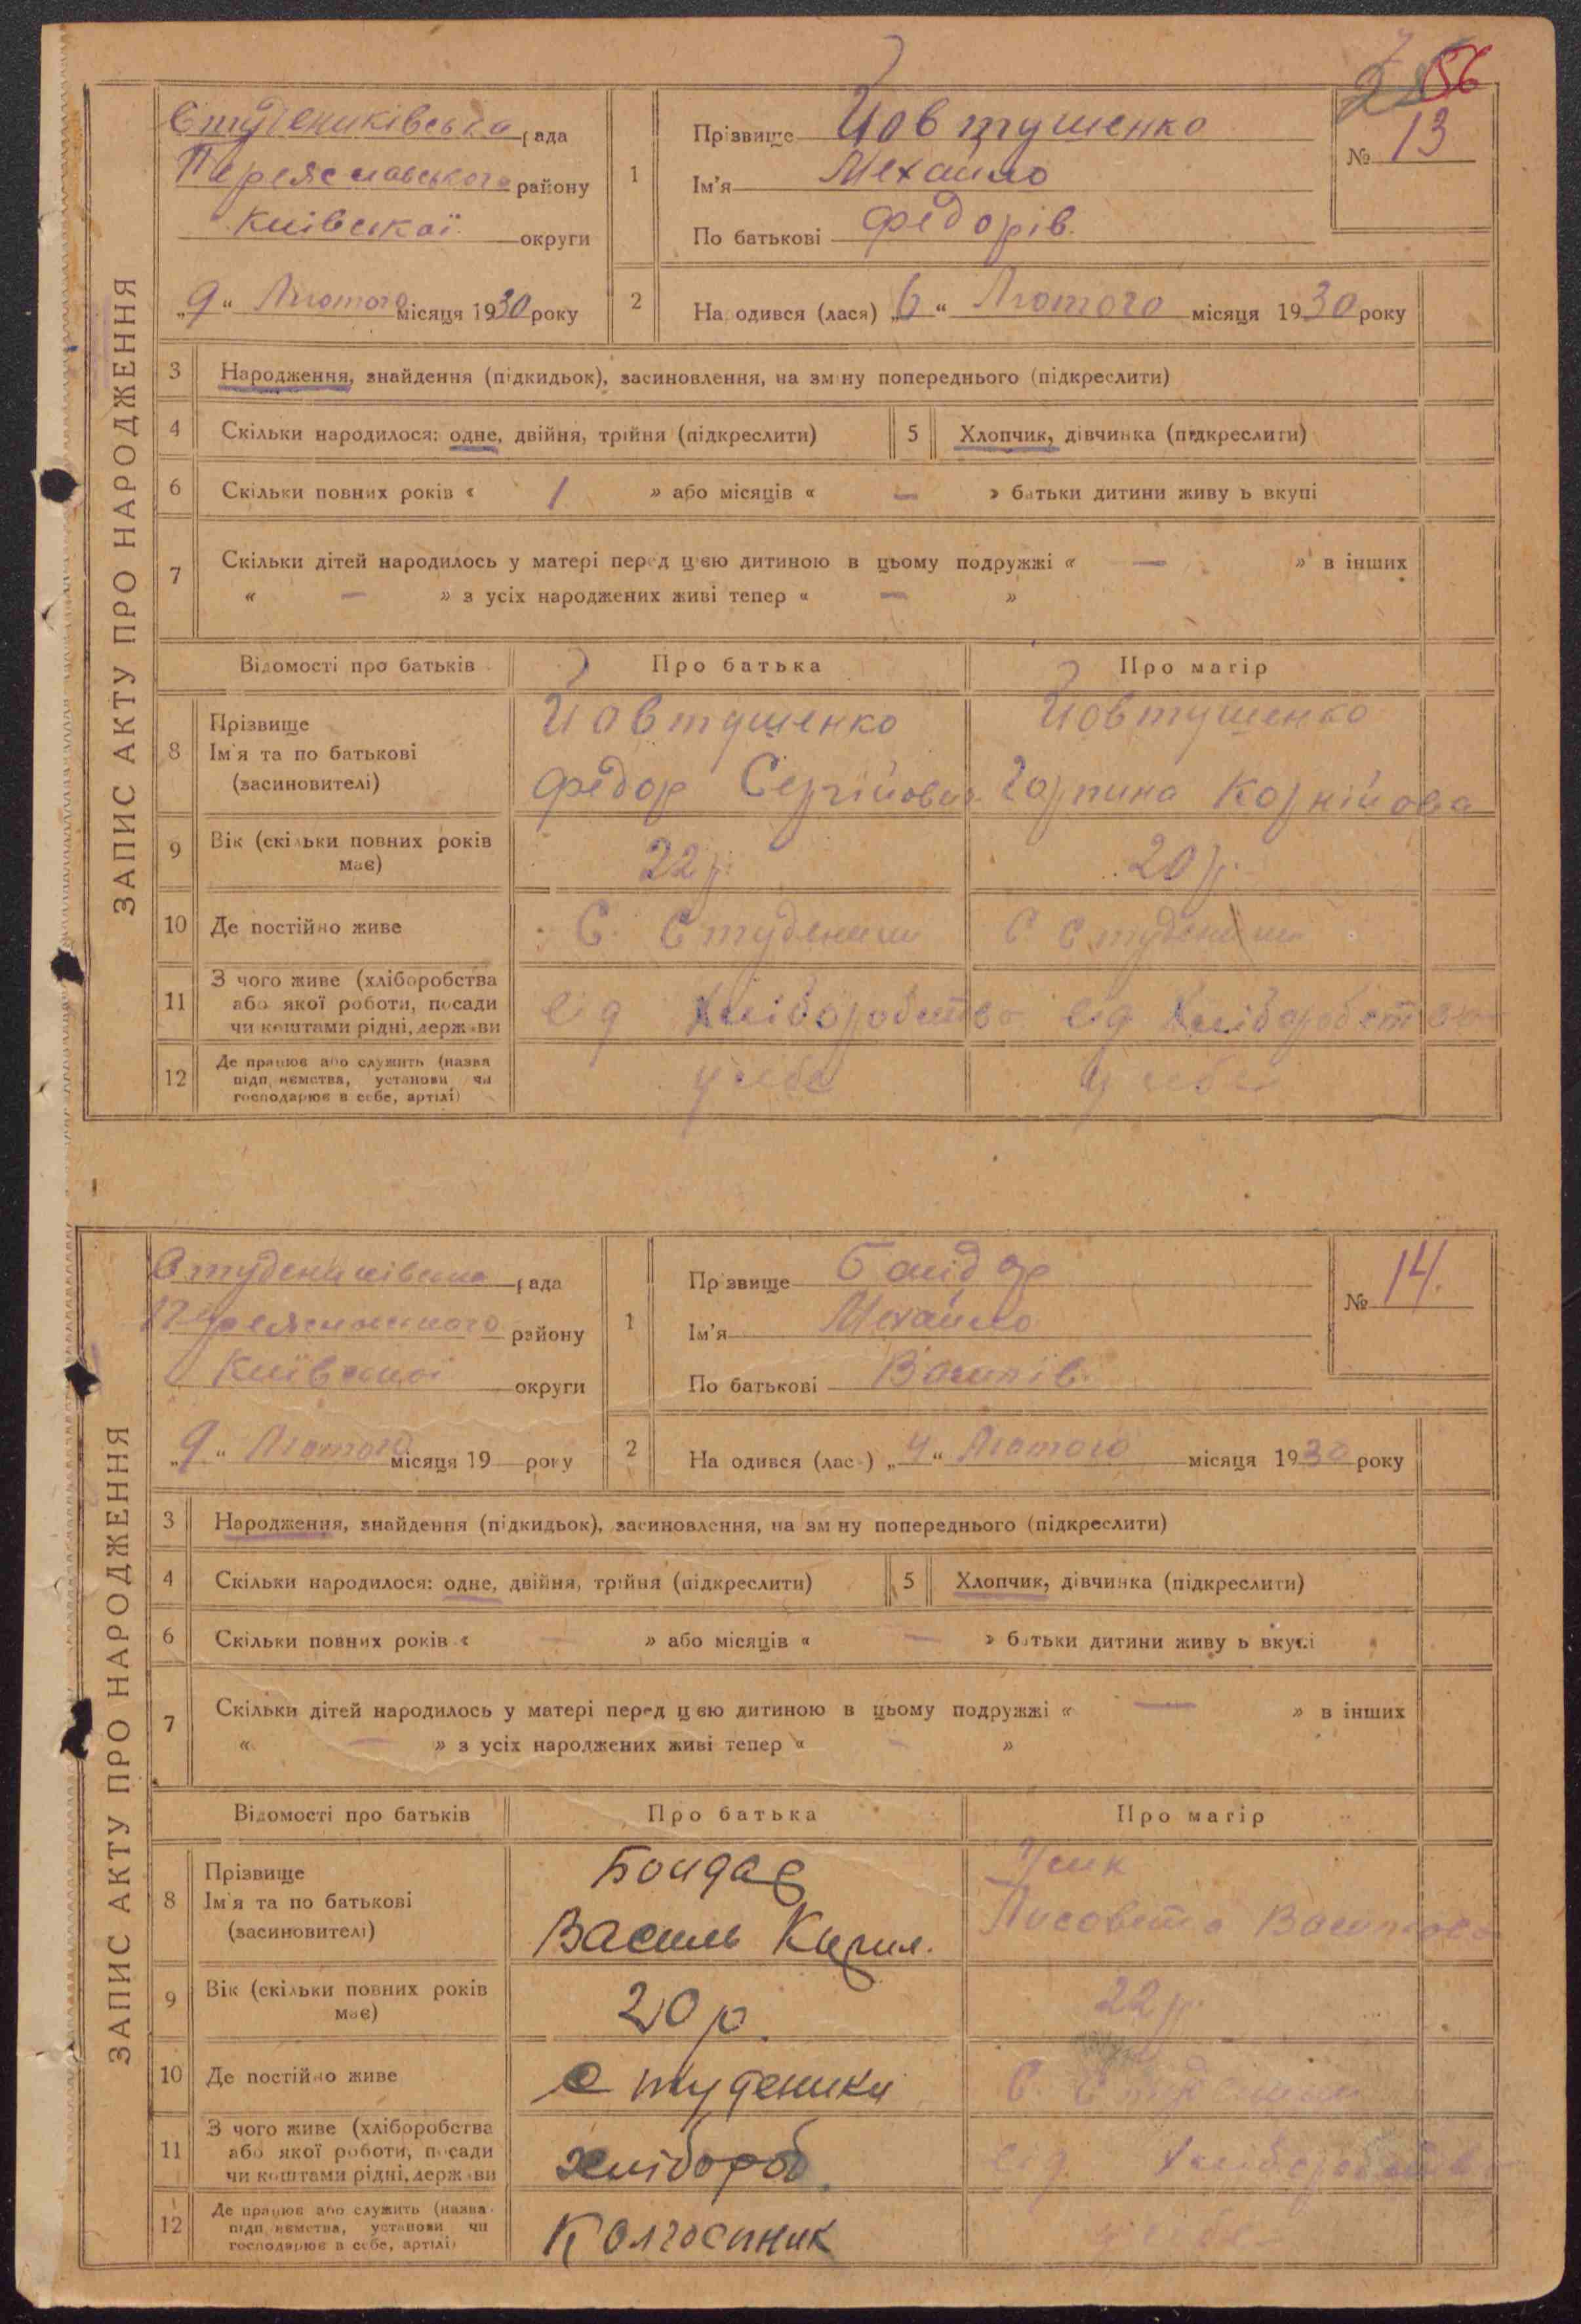 156
ЗАПИС АКТУ ПРО НАРОДЖЕННЯ
Студениківська рада
Переяславського району
Київської округи
„9“ Лютого місяця 1930 року
1
Прізвище Йовтушенко
Ім'я Михайло
По батькові Федорів.
№ 13
2
Народився (лася) „6“ Лютого місяця 1930 року
3 Народження, знайдення (підкидьок), засиновлення, на зміну попереднього (підкреслити)
4 Скільки народилося: одне, двійня, трійня (підкреслити)
5 Хлопчик, дівчинка (підкреслити)
6 Скільки повних років « 1 » або місяців « — » батьки дитини живуть вкупі
7 Скільки дітей народилось у матері перед цією дитиною в цьому подружжі « — » в інших
« — » з усіх народжених живі тепер « — »
Відомості про батьків Про батька Про матір
8 Прізвище
Ім'я та по батькові
(засиновителі)
Йовтушенко
Федор Сергійович
Йовтушенко
Горпина Корнійова
9 Вік (скільки повних років
має)
22 р.
20 р.
10 Де постійно живе
С. Студеники
С. Студеники
11 З чого живе (хліборобства
або якої роботи, посади
чи коштами рідні, держави
від Хліборобства
від Хліборобства
12 Де працює або служить (назва
підприємства, установи чи
господарює в себе, артілі)
у себе
у себе
ЗАПИС АКТУ ПРО НАРОДЖЕННЯ
Студениківська рада
Переяславського району
Київської округи
„9“ Лютого місяця 19 року
1
Прізвище Бондар
Ім'я Михайло
По батькові Василів.
№ 14.
2
Народився (лася) „4“ Лютого місяця 1930 року
3 Народження, знайдення (підкидьок), засиновлення, на зміну попереднього (підкреслити)
4 Скільки народилося: одне, двійня, трійня (підкреслити)
5 Хлопчик, дівчинка (підкреслити)
6 Скільки повних років « — » або місяців « — » батьки дитини живуть вкупі
7 Скільки дітей народилось у матері перед цією дитиною в цьому подружжі « — » в інших
« — » з усіх народжених живі тепер « — »
Відомості про батьків Про батька Про матір
8 Прізвище
Ім'я та по батькові
(засиновителі)
Бондар
Василь Кирил.
Усик
Лисовета Василова
9 Вік (скільки повних років
має)
20 р.
22 р.
10 Де постійно живе
Студеники
С. Студеники
11 З чого живе (хліборобства
або якої роботи, посади
чи коштами рідні, держави
хлібороб
від Хліборобства
12 Де працює або служить (назва
підприємства, установи чи
господарює в себе, артілі)
Колгоспник
у себе